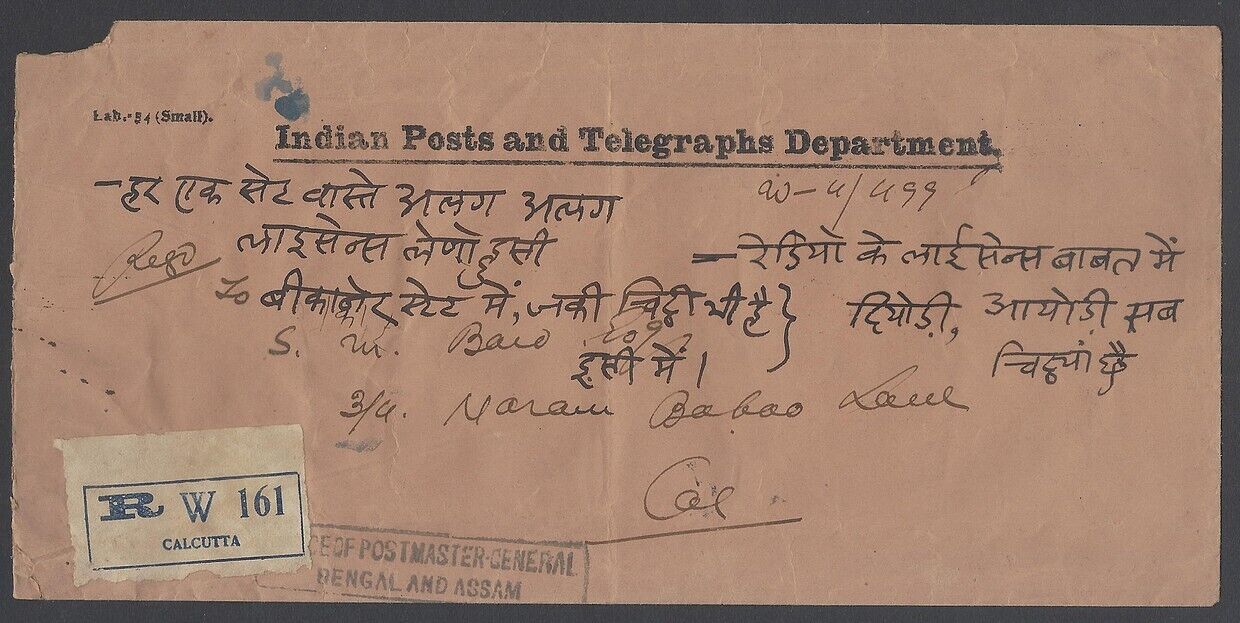 Lab.-54 (Small).
Indian Posts and Telegraphs Department.
- हर एक सेट वास्ते अलग अलग
लाइसेन्स लेणो हुसी
बीकानेर स्टेट में, जकी चिट्ठी भी है }
इसी में।
- रेडियो के लाईसेन्स बाबत में
दियोड़ी, आयोड़ी सब
चिठ्यां छै
Regd
To
S. M.
3/4. Naram Baboo Lane
Cal
R W 161
CALCUTTA
CE OF POSTMASTER-GENERAL
BENGAL AND ASSAM